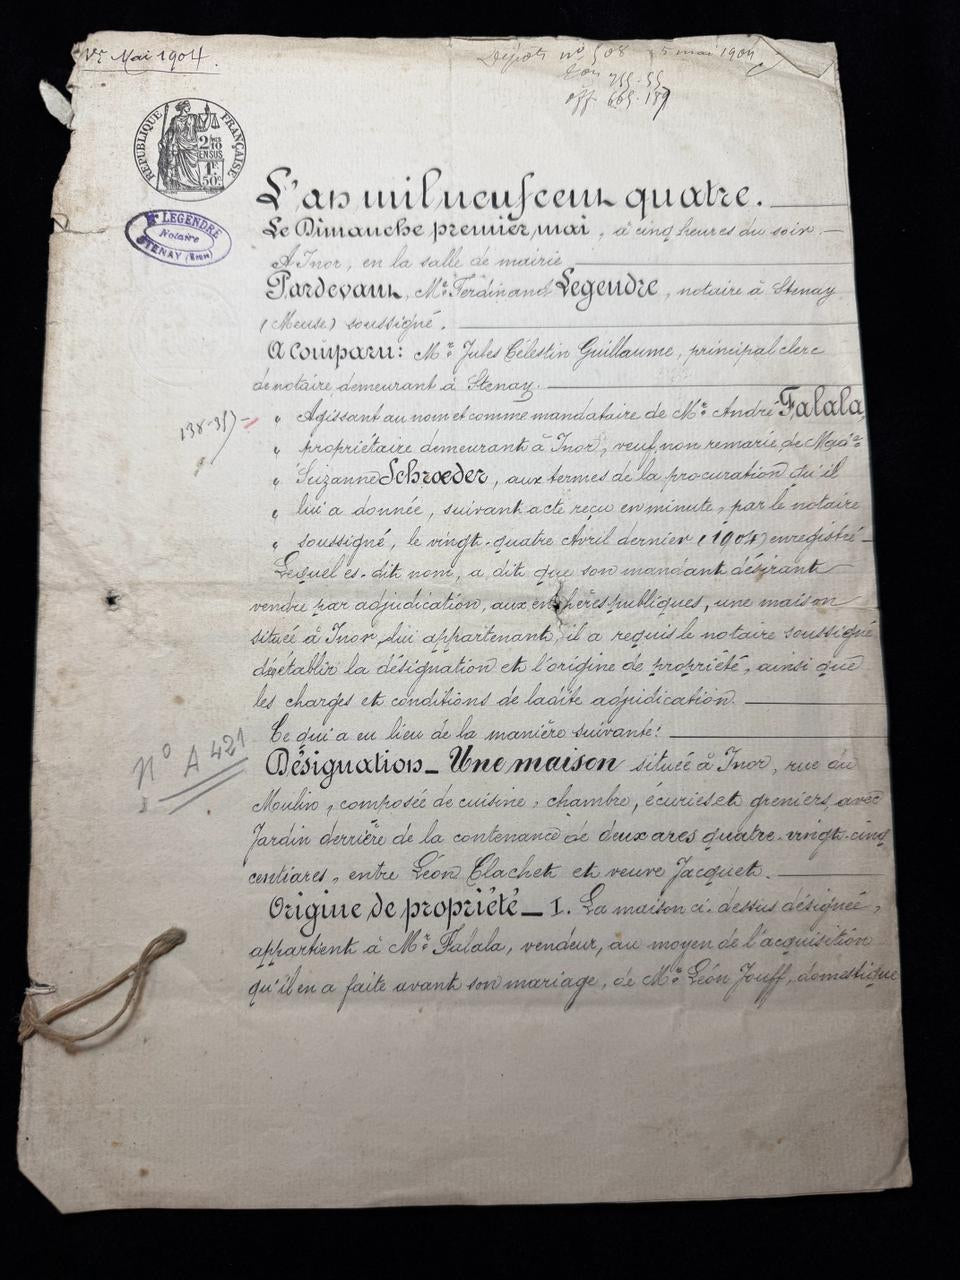 1er Mai 1904.
Dépôt nº 508 5 mai 1904
755.55
off 665.189
RÉPUBLIQUE FRANÇAISE
2/10
EN SUS
1F
50c
Me LEGENDRE
Notaire
STENAY (Meuse)
L'an mil neuf cent quatre.
Le Dimanche premier, mai, à cinq heures du soir.
A Inor, en la salle de mairie
Pardevant, Me Ferdinand Legendre, notaire à Stenay
(Meuse) soussigné.
A comparu: Mr Jules Célestin Guillaume, principal clerc
de notaire, demeurant à Stenay.
138-35
" Agissant au nom et comme mandataire de Mr André Falala,
" propriétaire demeurant à Inor, veuf, non remarié de Made
" Suzanne Schrœder, aux termes de la procuration qu'il
" lui a donnée, suivant acte reçu en minute, par le notaire
" soussigné, le vingt-quatre Avril dernier (1904) enregistré
Lequel es-dit nom, a dit que son mandant désirant
vendre par adjudication, aux enchères publiques, une maison
située à Inor, lui appartenant, il a requis le notaire soussigné
d'établir la désignation et l'origine de propriété, ainsi que
les charges et conditions de ladite adjudication.
Ce qui a eu lieu de la manière suivante:
Nº A 421
Désignation_ Une maison située à Inor, rue du
Moulin, composée de cuisine, chambre, écuries et greniers, avec
Jardin derrière de la contenance de deux ares quatre-vingt-cinq
centiares, entre Léon Clachet et veuve Jacquet.
Origine de propriété_ I. La maison ci-dessus désignée,
appartient à Mr Falala, vendeur, au moyen de l'acquisition
qu'il en a faite avant son mariage, de Mr Léon Jouff, domestique